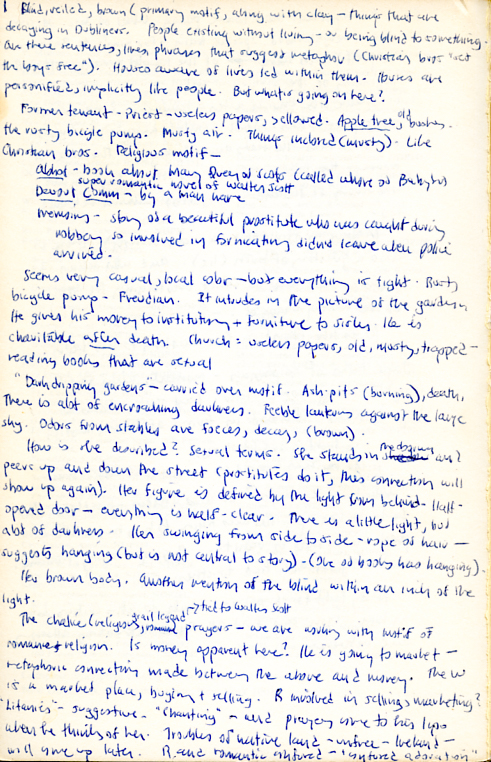 Blind, veiled, brown (primary motif, along with clay - things that are
decaying in Dubliners. People existing without living - or being blind to something.
Are there sentences, lines, phrases that suggest metaphor (Christian bros "set
the boys free"). Houses aware of lives led within them. Houses are
personified, implicitly like people. But what is going on here?
Former tenant - Priest - useless papers, yellowed. Apple tree, old bushes.
the rusty bicycle pump. Musty air. Things inclosed (musty) - like
Christian bros. Religious motif -
abbot - book about Mary Queen of Scots (called whore of Babylon)
super romantic novel of Walter Scott
Devout Comm - by a man
Memoirs - story of a beautiful prostitute who was caught during
robbery so involved in fornicating didn't leave when police
arrived.
Seems very casual, local color - but everything is tight. Rusty
bicycle pump - Freudian. It intrudes in the picture of the garden.
He gives his money to institutions + furniture to sister. He is
charitable after death. Church = useless papers, old, musty, trapped -
reading books that are sexual
"Dark dripping gardens" - carried over motif. Ash-pits (burning), death,
There is alot of encroaching darkness. Feeble lanterns against the large
sky. Odors from stables are feces, decay, (brown).
How is she described? Sexual terms. She stands in the doorway and
peers up and down the street (prostitutes do it, this connection will
show up again). Her figure is defined by the light from behind - Half-
opened door - everything is half-clear. There is a little light, but
alot of darkness. Her swinging from side to side - rope of hair -
suggests hanging (but is not central to story) - (one of books has hanging).
Her brown body. Another mention of the blind within an inch of the
light.
The chalice (religious, grail legend → tied to Walter Scott prayers - we are working with motif of
romance + religion. Is money apparent here? He is going to market -
metaphoric connection made between the above and money. The w
is a market place, buying + selling. R involved in selling, marketing?
Litanies - suggestive. "Chanting" - and prayers come to his lips
when he thinks of her. Troubles of native land - unfree - Ireland -
will come up later. R and romantic confused - "confused adoration"